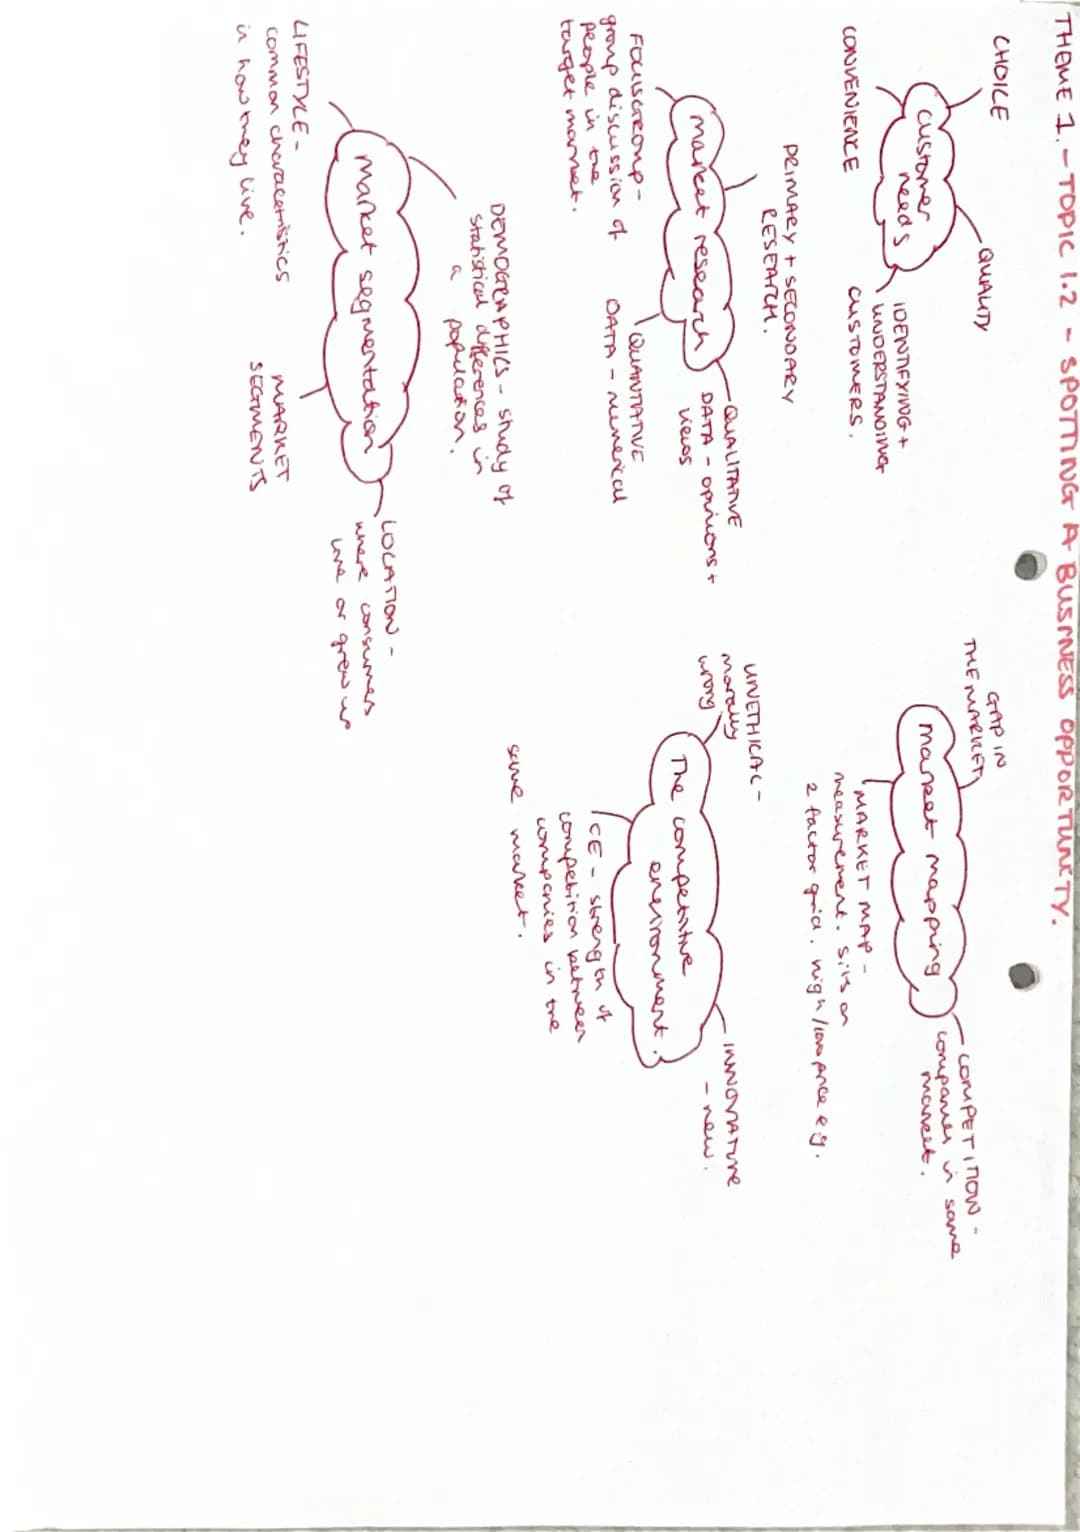 THEME 1. - TOPIC 1.2 - SPOTTING A BUSINESS OPPORTUNITY.
CHOICE
QUALITY
customer
needs
CONVENIENCE
IDENTIFYING +
UNDERSTANDING
CUSTOMERS.
GAP IN
THE MARKET
market mapping
COMPETITION -
companies in same
market.
MARKET MAP -
measurement. sits on
2 factor grid. high/low price eg.
PRIMARY + SECONDARY
RESEARCH.
market research
QUALITATIVE
DATA - opinions +
views
FOCUSGROUP -
group discussion of
people in the
target market.
QUANTATIVE
DATA - numerical
UNETHICAL -
morally
wrong
The competitive
environment.
INNOVATIVE
- new.
CE - strength of
competition between
companies in the
same market.
DEMOGRAPHICS - study of
statistical differences in
a population.
market segmentation
LOCATION -
where consumers
live or grew up
LIFESTYLE -
common characteristics
in how they live.
MARKET
SEGMENTS